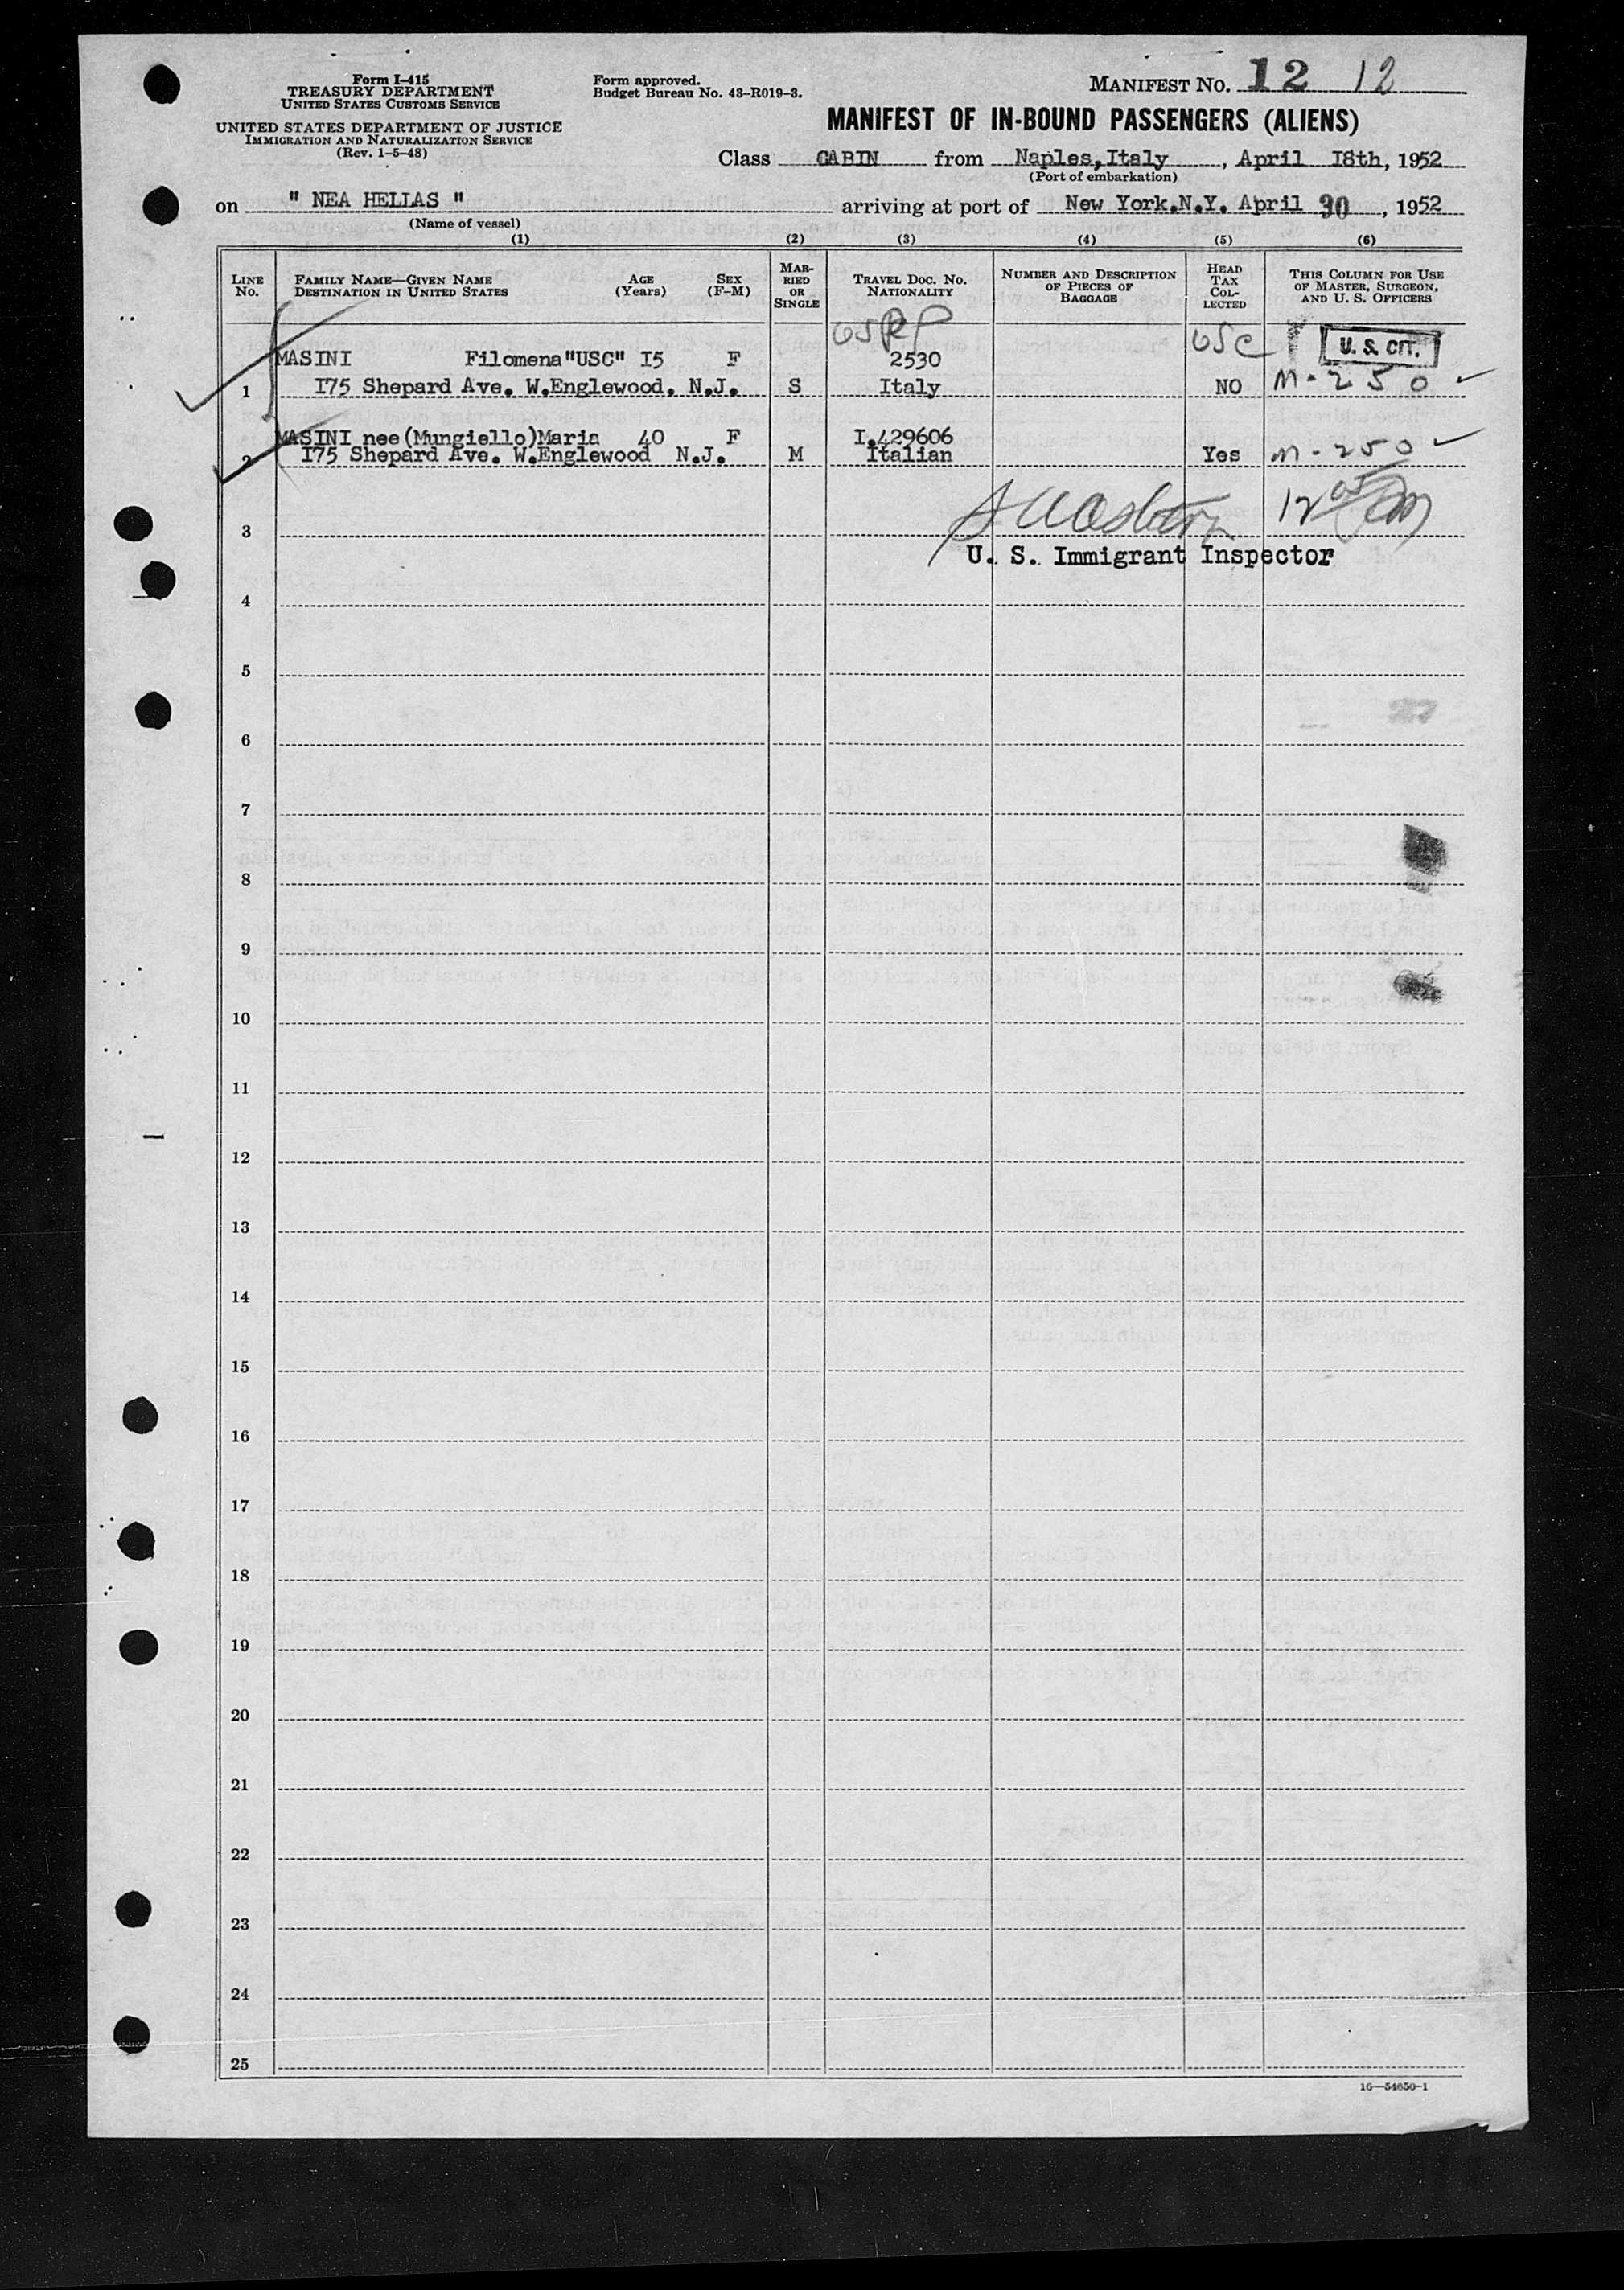 Form I-415
TREASURY DEPARTMENT
UNITED STATES CUSTOMS SERVICE
UNITED STATES DEPARTMENT OF JUSTICE
IMMIGRATION AND NATURALIZATION SERVICE
(Rev. 1-5-48)
Form approved.
Budget Bureau No. 43-R019-3.
MANIFEST NO. 12 12
MANIFEST OF IN-BOUND PASSENGERS (ALIENS)
Class CABIN from Naples, Italy, April I8th, 1952
(Port of embarkation)
on " NEA HELLAS " arriving at port of New York.N.Y. April 30, 1952
(Name of vessel)
(1) (2) (3) (4) (5) (6)
LINE NO.
FAMILY NAME—GIVEN NAME
DESTINATION IN UNITED STATES
AGE (Years)
SEX (F-M)
MARRIED OR SINGLE
TRAVEL DOC. NO.
NATIONALITY
NUMBER AND DESCRIPTION OF PIECES OF BAGGAGE
HEAD TAX COLLECTED
THIS COLUMN FOR USE OF MASTER, SURGEON, AND U. S. OFFICERS
USRP USC U. S. CIT.
MASINI Filomena"USC" I5 F 2530
1 I75 Shepard Ave. W.Englewood. N.J. S Italy NO M-250
MASINI nee(Mungiello)Maria 40 F I.429606
2 I75 Shepard Ave. W.Englewood N.J. M Italian Yes M-250
3
U. S. Immigrant Inspector
4
5
6
7
8
9
10
11
12
13
14
15
16
17
18
19
20
21
22
23
24
25
16—54650-1